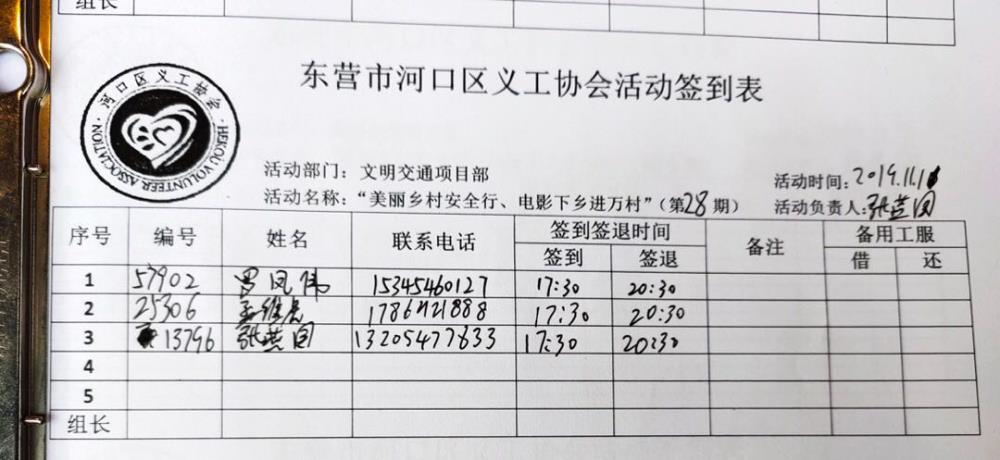 组长
东营市河口区义工协会活动签到表
河口区义工协会
HEKOU VOLUNTEER ASSOCIATION
活动部门：文明交通项目部
活动时间：2019.11.1
活动名称：“美丽乡村安全行、电影下乡进万村”（第28期）
活动负责人：张英
序号 编号 姓名 联系电话 签到签退时间 备注 备用工服
签到 签退 借 还
1 57902 罗凤伟 15345460127 17:30 20:30
2 25306 孟维 1786 21888 17:30 20:30
3 13796 张英 13205477833 17:30 20:30
4
5
组长